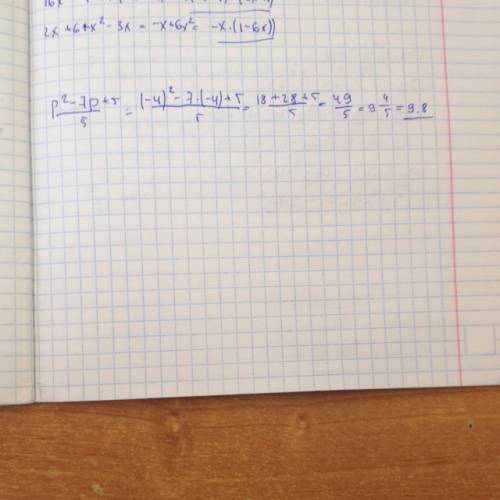 2x+6+x²-3x = -x+6x² = -x·(1-6x)
(p²-7p+5)/5 = ((-4)²-7·(-4)+5)/5 = (18+28+5)/5 = 49/5 = 9 4/5 = 9.8